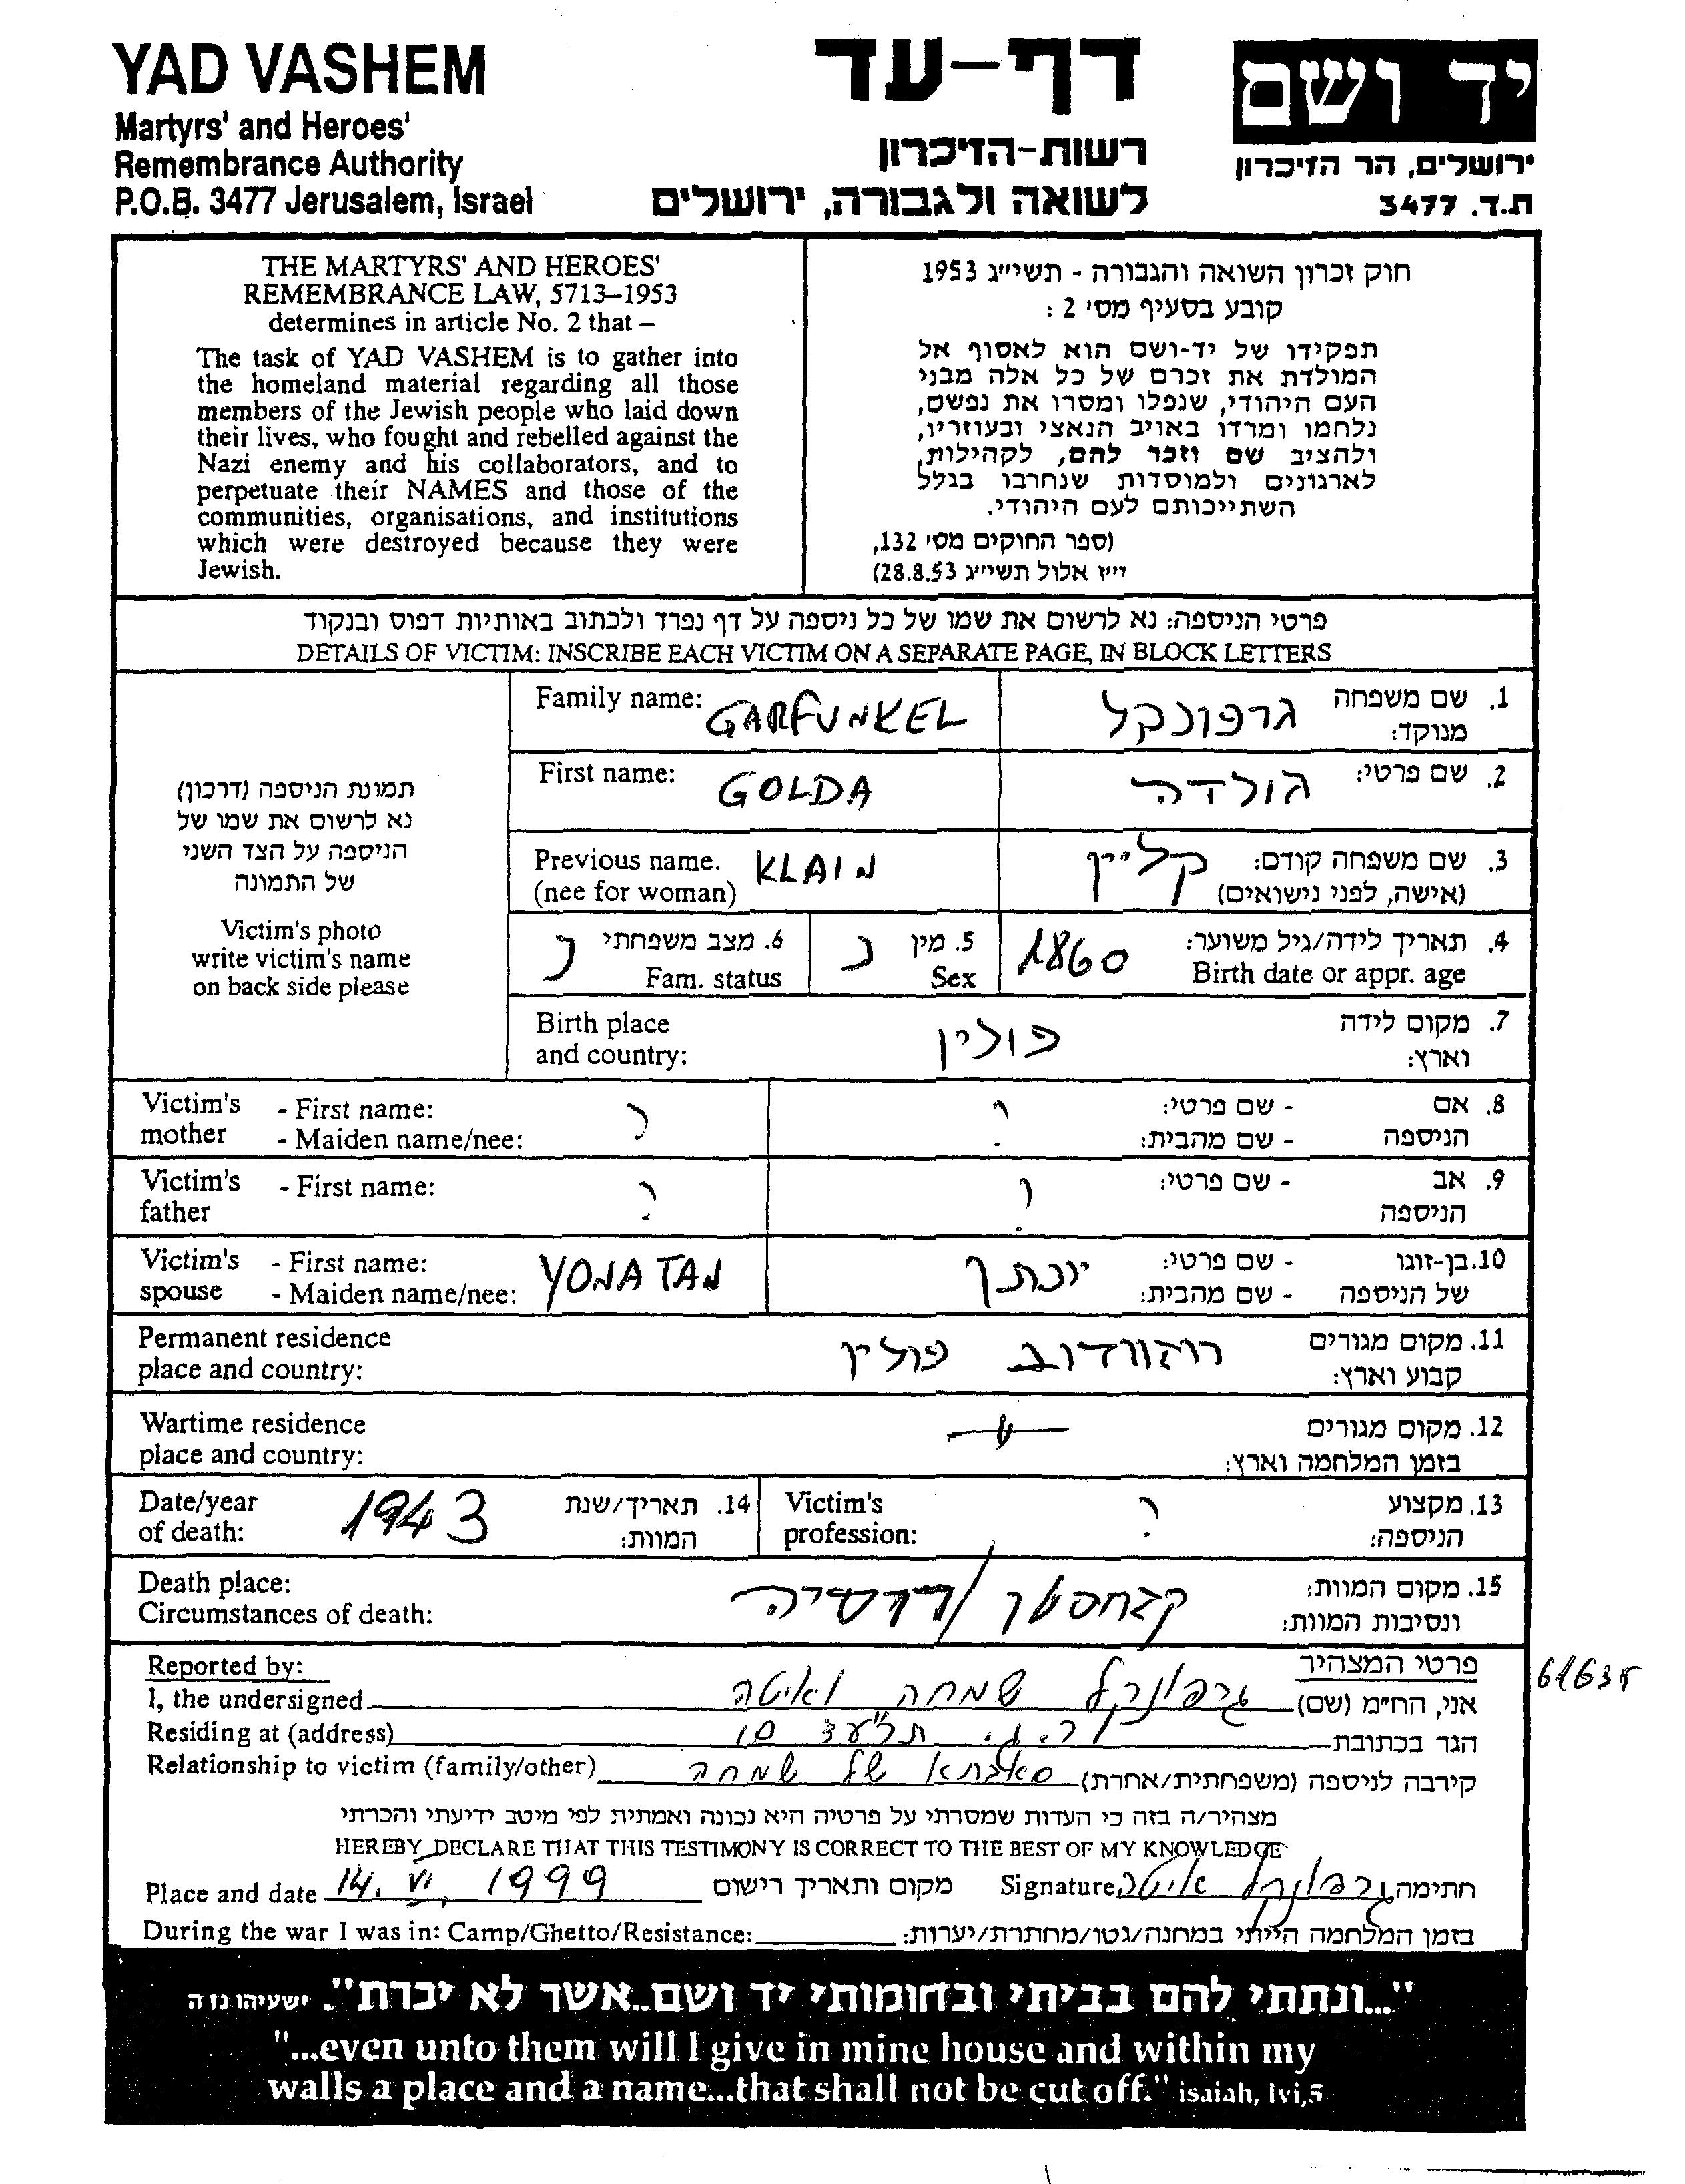 YAD VASHEM
Martyrs' and Heroes'
Remembrance Authority
P.O.B. 3477 Jerusalem, Israel
דף-עד
רשות-הזיכרון
לשואה ולגבורה, ירושלים
יד ושם
ירושלים, הר הזיכרון
ת.ד. 3477
THE MARTYRS' AND HEROES'
REMEMBRANCE LAW, 5713–1953
determines in article No. 2 that –
The task of YAD VASHEM is to gather into
the homeland material regarding all those
members of the Jewish people who laid down
their lives, who fought and rebelled against the
Nazi enemy and his collaborators, and to
perpetuate their NAMES and those of the
communities, organisations, and institutions
which were destroyed because they were
Jewish.
חוק זכרון השואה והגבורה - תשי״ג 1953
קובע בסעיף מס׳ 2 :
תפקידו של יד-ושם הוא לאסוף אל
המולדת את זכרם של כל אלה מבני
העם היהודי, שנפלו ומסרו את נפשם,
נלחמו ומרדו באויב הנאצי ובעוזריו,
ולהציב שם וזכר להם, לקהילות,
לארגונים ולמוסדות שנחרבו בגלל
השתייכותם לעם היהודי.
(ספר החוקים מס׳ 132,
י״ז אלול תשי״ג 28.8.53)
פרטי הניספה: נא לרשום את שמו של כל ניספה על דף נפרד ולכתוב באותיות דפוס ובנקוד
DETAILS OF VICTIM: INSCRIBE EACH VICTIM ON A SEPARATE PAGE, IN BLOCK LETTERS
תמונת הניספה (דרכון)
נא לרשום את שמו של
הניספה על הצד השני
של התמונה
Victim's photo
write victim's name
on back side please
Family name: GARFUNKEL
1. שם משפחה מנוקד: גרפונקל
First name: GOLDA
2. שם פרטי: גולדה
Previous name. (nee for woman) KLAIN
3. שם משפחה קודם: (אישה, לפני נישואים) קליין
4. תאריך לידה/גיל משוער: Birth date or appr. age 1860
5. מין Sex נ
6. מצב משפחתי Fam. status נ
Birth place and country:
7. מקום לידה וארץ: פולין
Victim's mother - First name: ?
- Maiden name/nee:
8. אם הניספה - שם פרטי: ?
- שם מהבית:
Victim's father - First name: ?
9. אב הניספה - שם פרטי: ?
Victim's spouse - First name: YONATAN
- Maiden name/nee:
10. בן-זוגו של הניספה - שם פרטי: יונתן
- שם מהבית:
Permanent residence place and country:
11. מקום מגורים קבוע וארץ: רוזוודוב פולין
Wartime residence place and country:
12. מקום מגורים בזמן המלחמה וארץ:
Victim's profession:
13. מקצוע הניספה: ?
Date/year of death: 1943
14. תאריך/שנת המוות:
Death place:
Circumstances of death:
15. מקום המוות: ונסיבות המוות: קזחסטן / רוסיה
Reported by:
פרטי המצהיר
61635
I, the undersigned
אני, הח״מ (שם) גרפונקל שמחה ואיטה
Residing at (address)
הגר בכתובת ר.ג. תל״עד 10
Relationship to victim (family/other)
קירבה לניספה (משפחתית/אחרת) סאבתא של שמחה
מצהיר/ה בזה כי העדות שמסרתי על פרטיה היא נכונה ואמתית לפי מיטב ידיעתי והכרתי
HEREBY DECLARE THAT THIS TESTIMONY IS CORRECT TO THE BEST OF MY KNOWLEDGE
Place and date 14. VI. 1999 מקום ותאריך רישום
Signature גרפונקל איטה חתימה
During the war I was in: Camp/Ghetto/Resistance: בזמן המלחמה הייתי במחנה/גטו/מחתרת/יערות:
"...ונתתי להם בביתי ובחומותי יד ושם..אשר לא יכרת". ישעיהו נו ה
"...even unto them will I give in mine house and within my
walls a place and a name...that shall not be cut off." isaiah, lvi,5